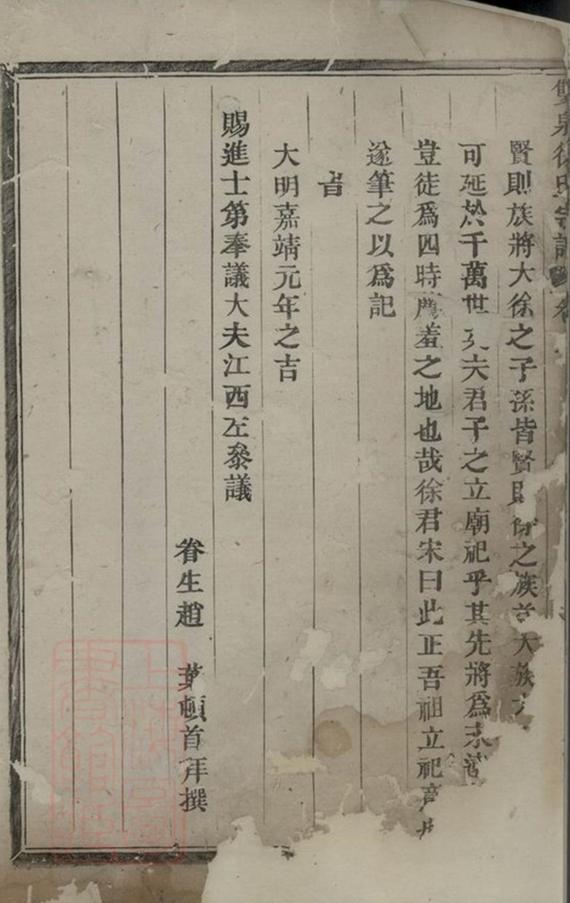 賢則族將大徐之子孫皆賢則徐之族大族
可延於千萬世又大君子之立廟祀乎其先將爲
豈徒爲四時薦羞之地也哉徐君宋曰此正吾祖立祀意
遂筆之以爲記
旹
大明嘉靖元年之吉
賜進士第奉議大夫江西左叅議
眷生趙 頓首拜撰